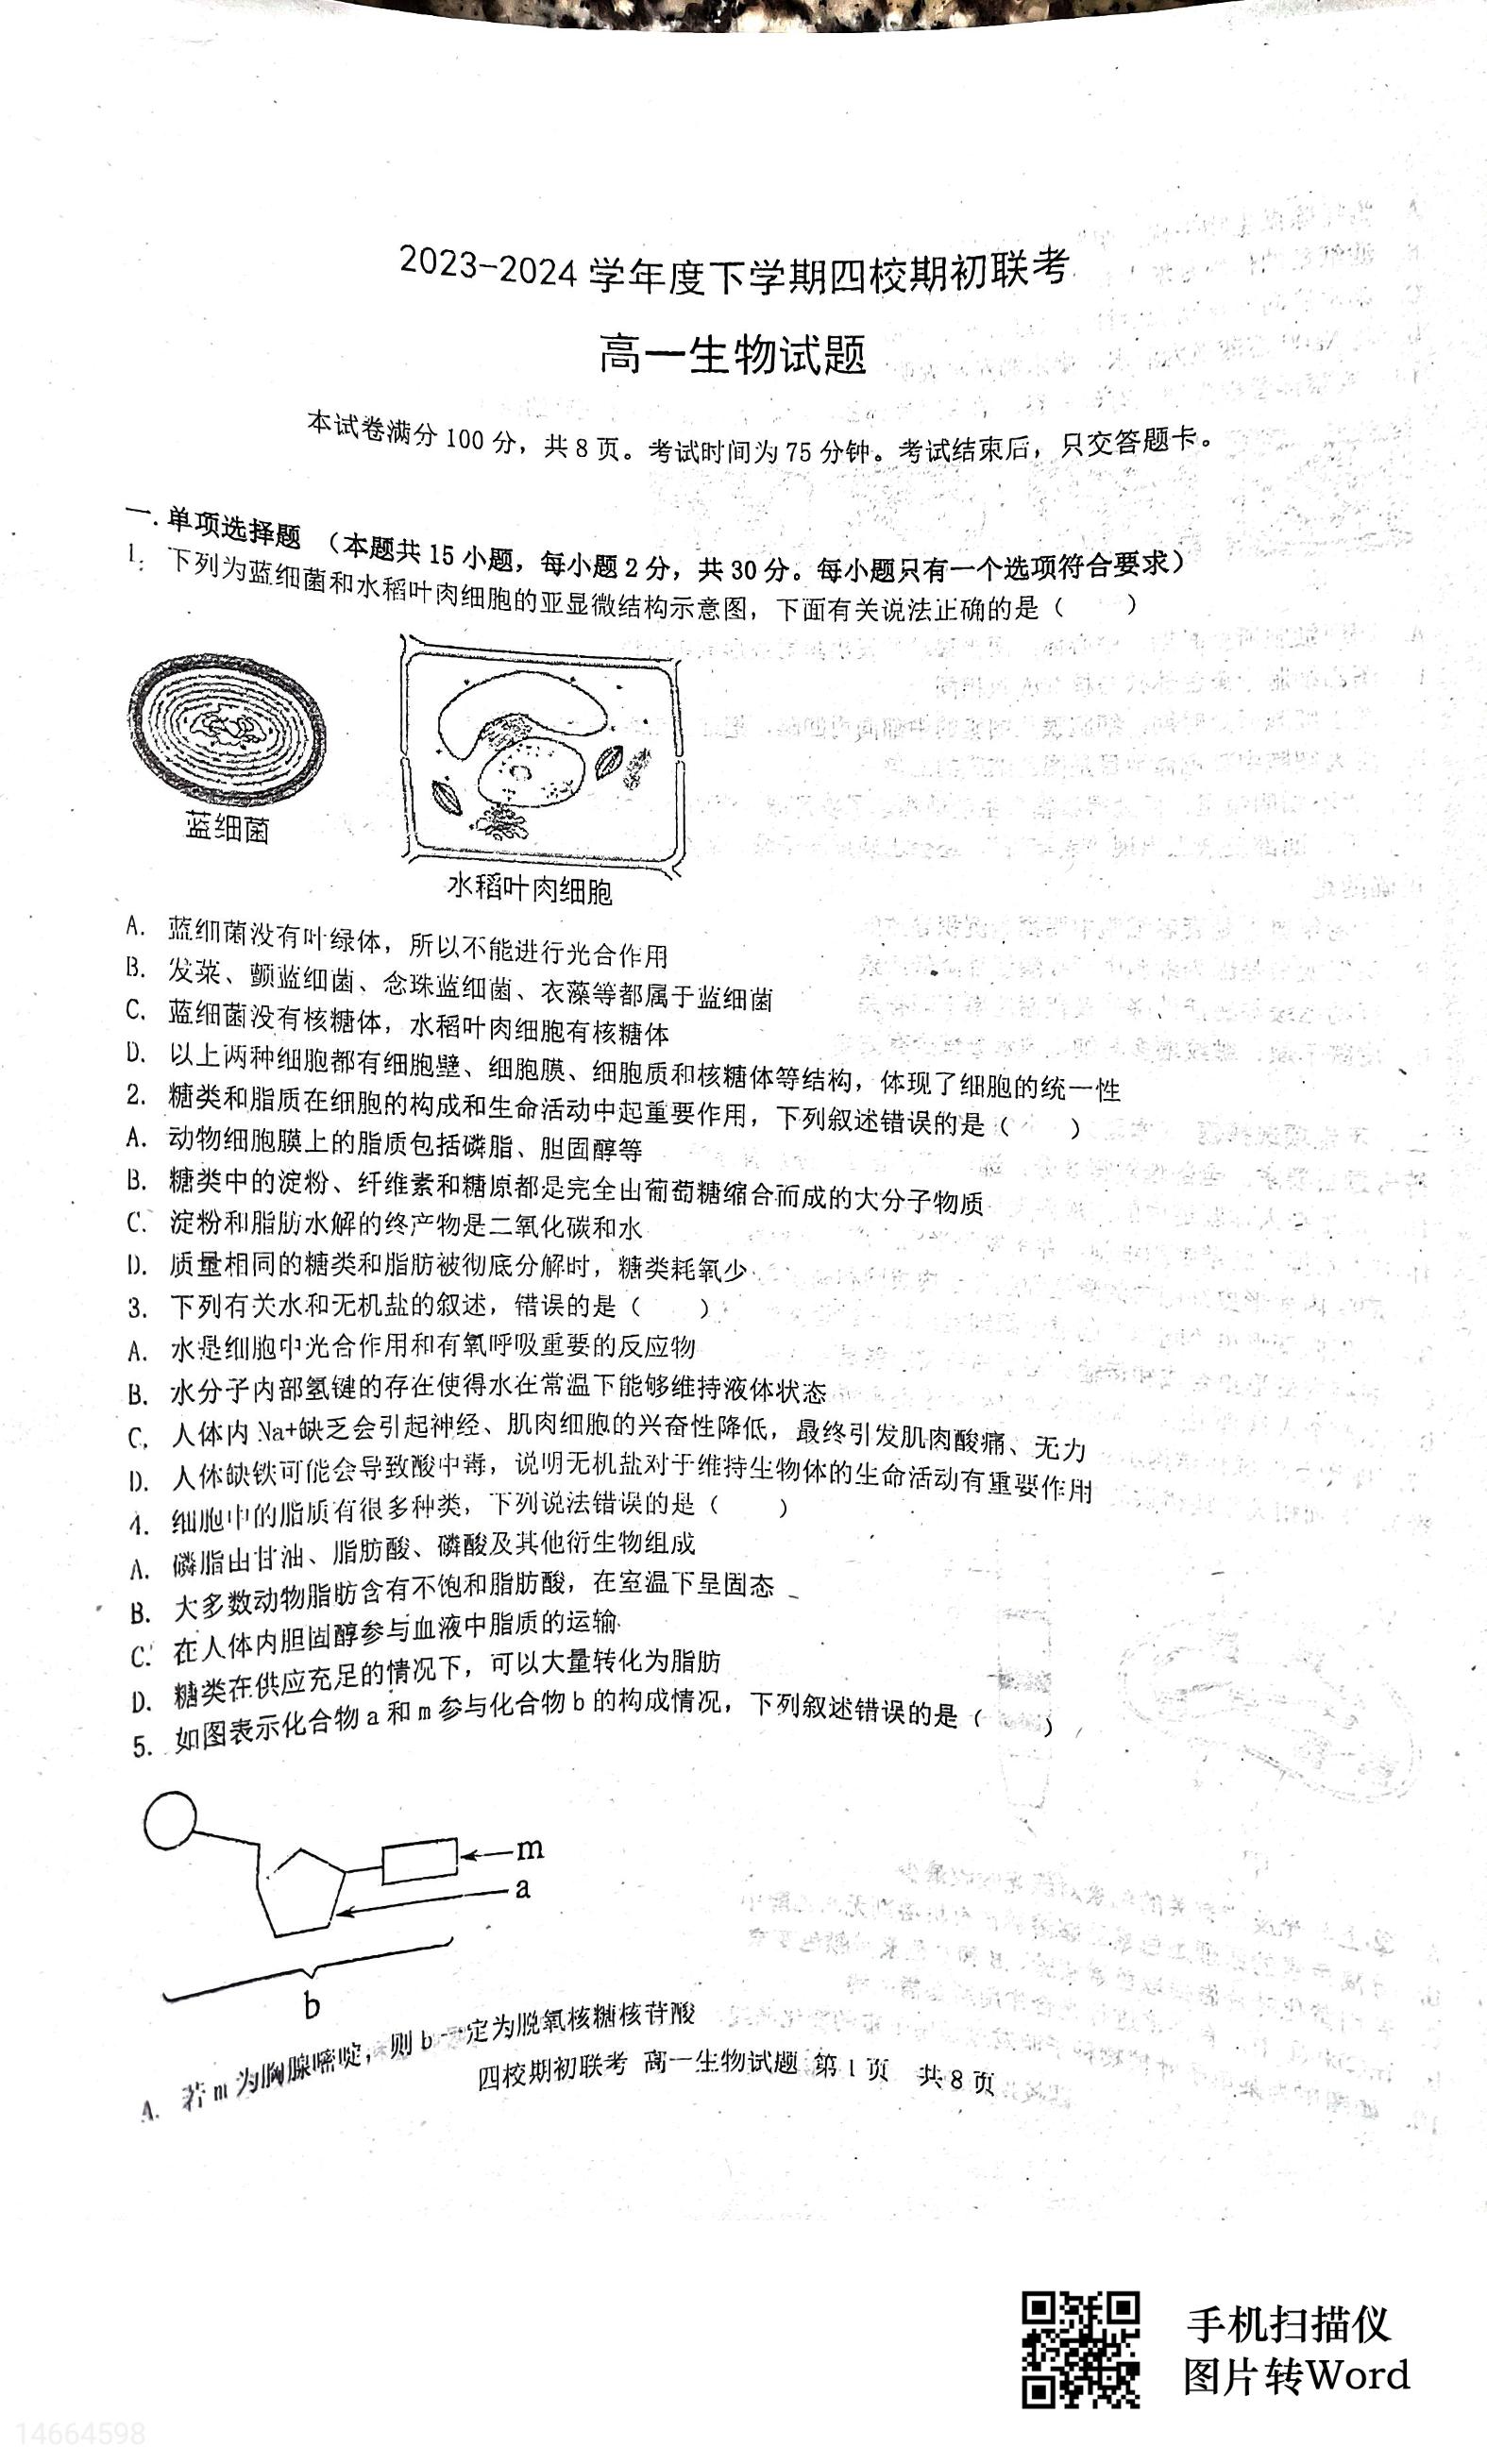 2023-2024 学年度下学期四校期初联考
高一生物试题
本试卷满分 100 分，共 8 页。考试时间为 75 分钟。考试结束后，只交答题卡。
一. 单项选择题 （本题共 15 小题，每小题 2 分，共 30 分。每小题只有一个选项符合要求）
1. 下列为蓝细菌和水稻叶肉细胞的亚显微结构示意图，下面有关说法正确的是（ ）
蓝细菌
水稻叶肉细胞
A. 蓝细菌没有叶绿体，所以不能进行光合作用
B. 发菜、颤蓝细菌、念珠蓝细菌、衣藻等都属于蓝细菌
C. 蓝细菌没有核糖体，水稻叶肉细胞有核糖体
D. 以上两种细胞都有细胞壁、细胞膜、细胞质和核糖体等结构，体现了细胞的统一性
2. 糖类和脂质在细胞的构成和生命活动中起重要作用，下列叙述错误的是（ ）
A. 动物细胞膜上的脂质包括磷脂、胆固醇等
B. 糖类中的淀粉、纤维素和糖原都是完全由葡萄糖缩合而成的大分子物质
C. 淀粉和脂肪水解的终产物是二氧化碳和水
D. 质量相同的糖类和脂肪被彻底分解时，糖类耗氧少
3. 下列有关水和无机盐的叙述，错误的是（ ）
A. 水是细胞中光合作用和有氧呼吸重要的反应物
B. 水分子内部氢键的存在使得水在常温下能够维持液体状态
C. 人体内 Na+缺乏会引起神经、肌肉细胞的兴奋性降低，最终引发肌肉酸痛、无力
D. 人体缺铁可能会导致酸中毒，说明无机盐对于维持生物体的生命活动有重要作用
4. 细胞中的脂质有很多种类，下列说法错误的是（ ）
A. 磷脂由甘油、脂肪酸、磷酸及其他衍生物组成
B. 大多数动物脂肪含有不饱和脂肪酸，在室温下呈固态
C. 在人体内胆固醇参与血液中脂质的运输
D. 糖类在供应充足的情况下，可以大量转化为脂肪
5. 如图表示化合物 a 和 m 参与化合物 b 的构成情况，下列叙述错误的是（ ）
m
a
b
A. 若 m 为胸腺嘧啶，则 b 一定为脱氧核糖核苷酸
四校期初联考 高一生物试题 第 1 页 共 8 页
手机扫描仪
图片转Word
14664598